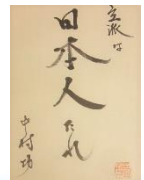 立派な
日本人たれ
中村功